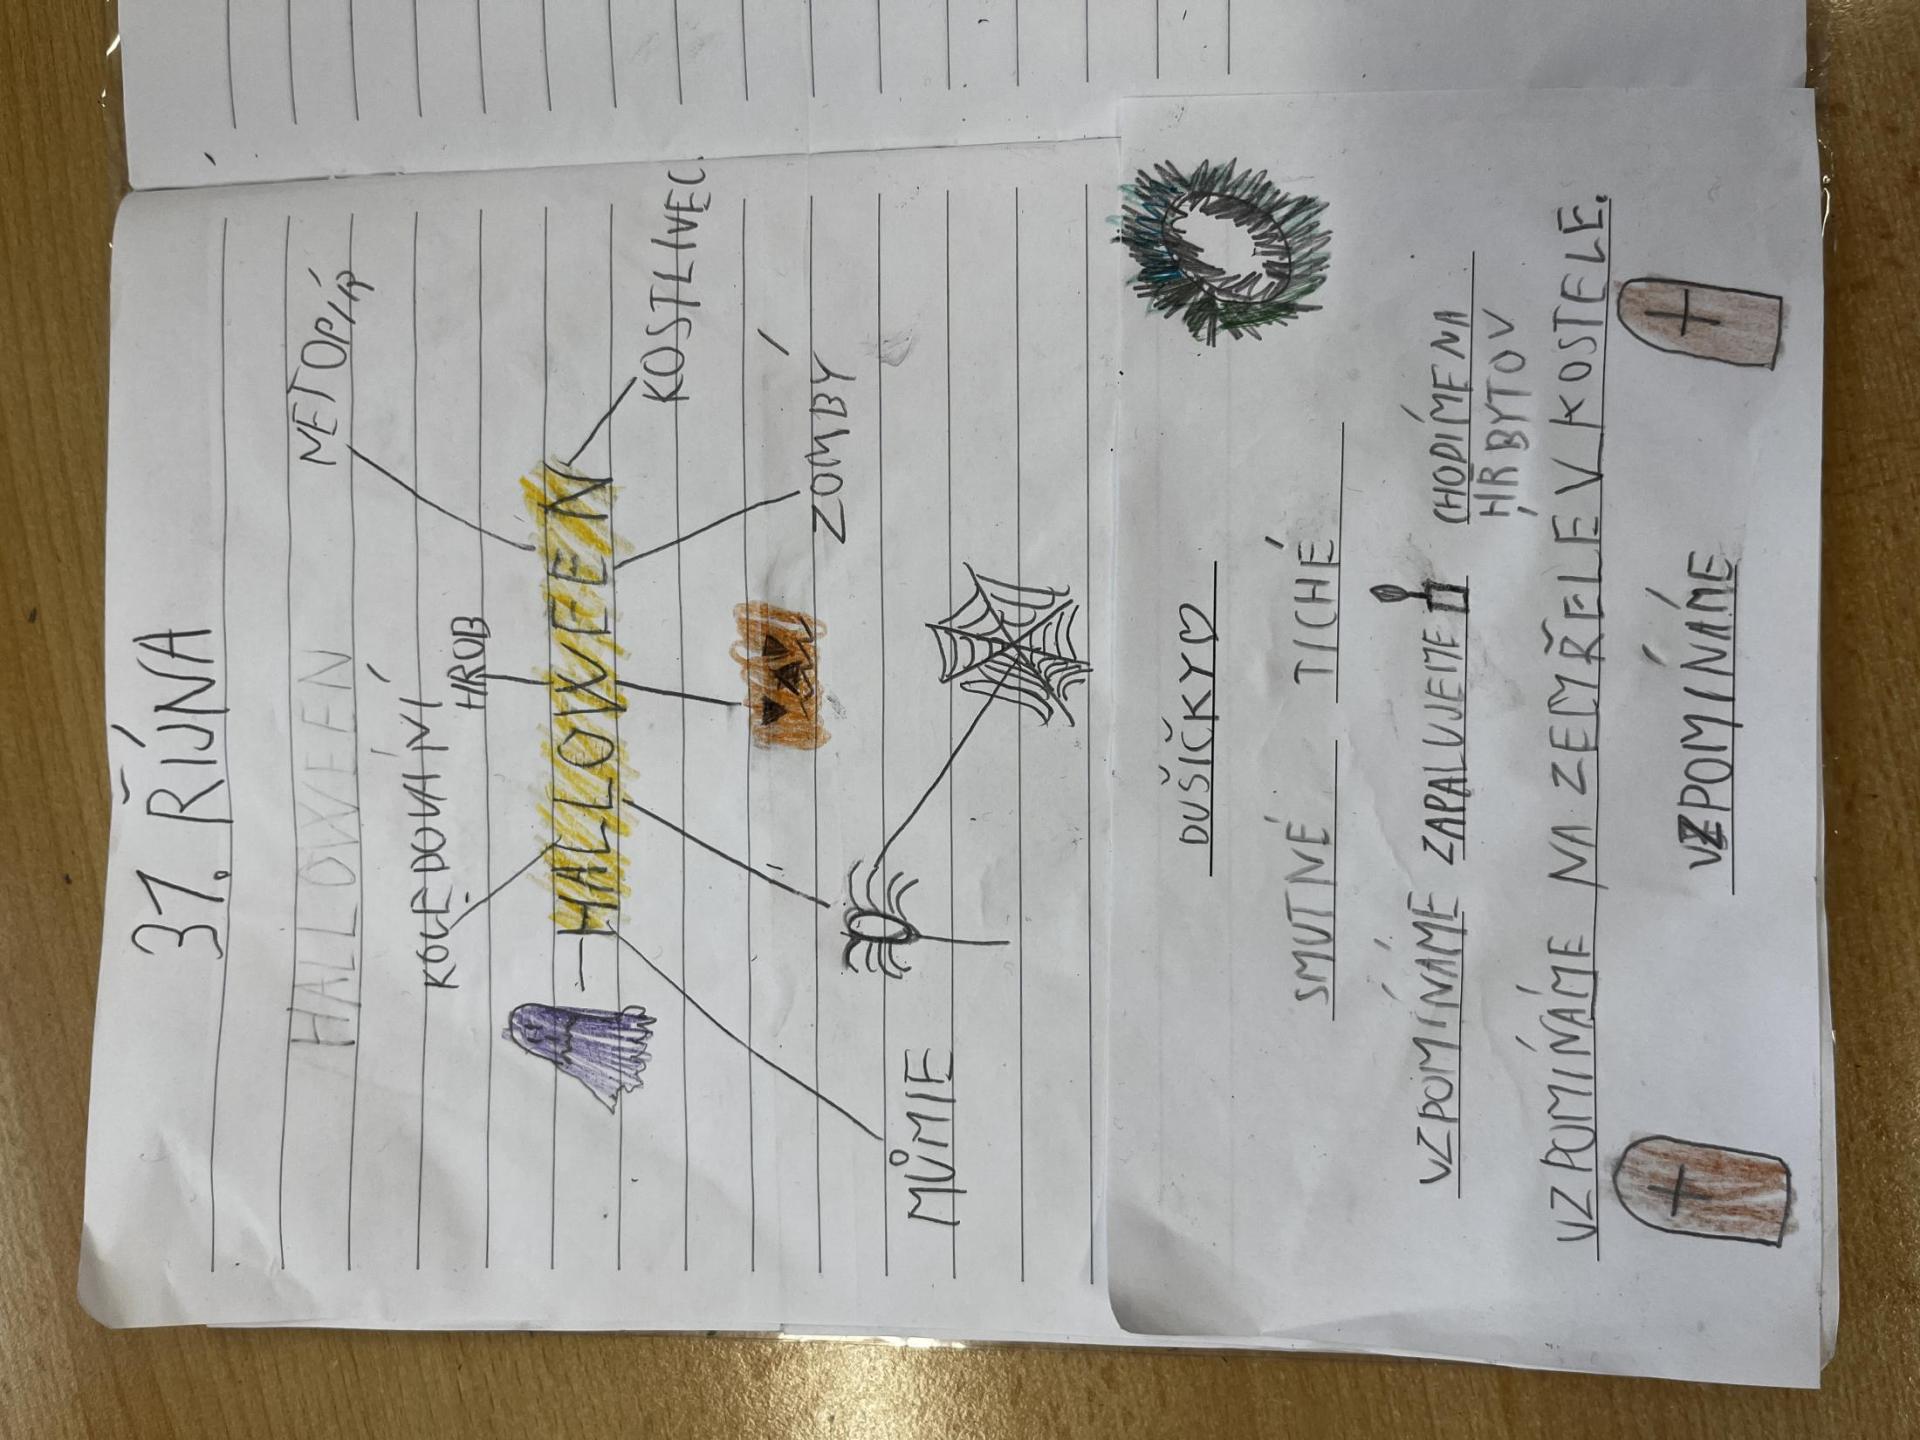 31. ŘÍJNA
HALLOWEEN
NETOPÍR
KOLEDOVÁNÍ
HROB
HALLOWEEN
KOSTLIVEC
ZOMBÝ
MŮMIE
DUŠIČKY
SMUTNÉ TICHÉ
VZPOMÍNÁME ZAPALUJEME CHODÍME NA
HŘBYTOV
VZPOMÍNÁME NA ZEMŘELÉ V KOSTELE.
VZPOMÍNÁME